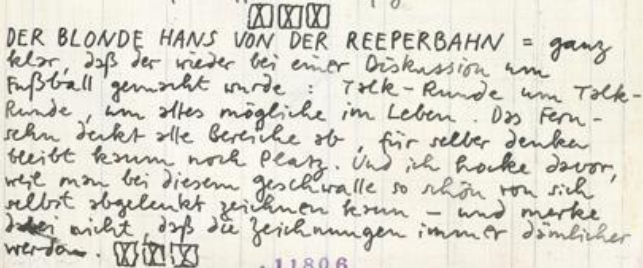 XXX
DER BLONDE HANS VON DER REEPERBAHN = ganz
klar, daß der wieder bei einer Diskussion um
Fußball gemacht wurde : Talk-Runde um Talk-
Runde, um alles mögliche im Leben. Das Fern-
sehn deckt alle Bereiche ab, für selber denken
bleibt kaum noch Platz. Und ich hocke davor,
weil man bei diesem geschwalle so schön von sich
selbst abgelenkt zeichnen kann – und merke
dabei nicht, daß die Zeichnungen immer dämlicher
werden. XXX
.11806